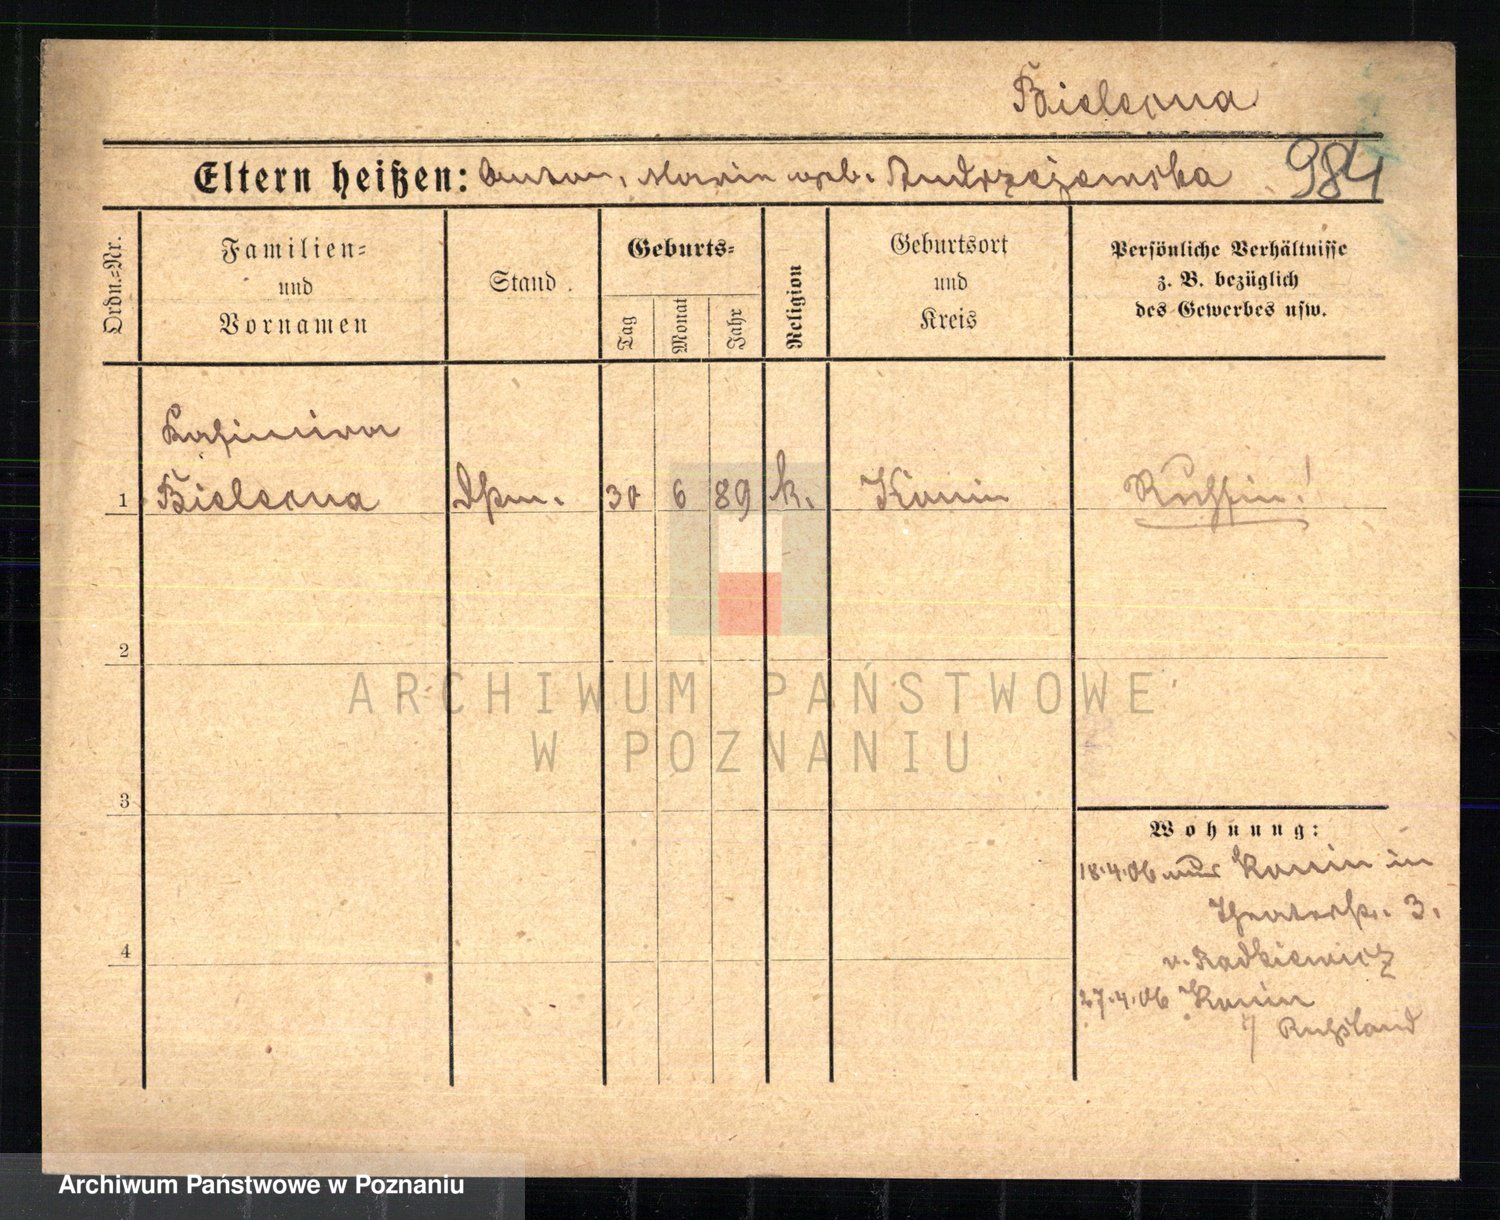 Bielscua
Eltern heißen: Anton, Marie geb. Andrzejewska 984
Ordn.-Nr.
Familien-
und
Vornamen
Stand.
Geburts-
Tag
Monat
Jahr
Religion
Geburtsort
und
Kreis
Persönliche Verhältnisse
z. B. bezüglich
des Gewerbes usw.
Kasimira
1 30 6 89 k. Konin Russin!
2
3
4
Wohnung:
18.4.06 aus Konin in
Theaterstr. 3.
v. Radkiewicz
27.4.06 Konin
Rußland
ARCHIWUM PAŃSTWOWE
W POZNANIU
Archiwum Państwowe w Poznaniu